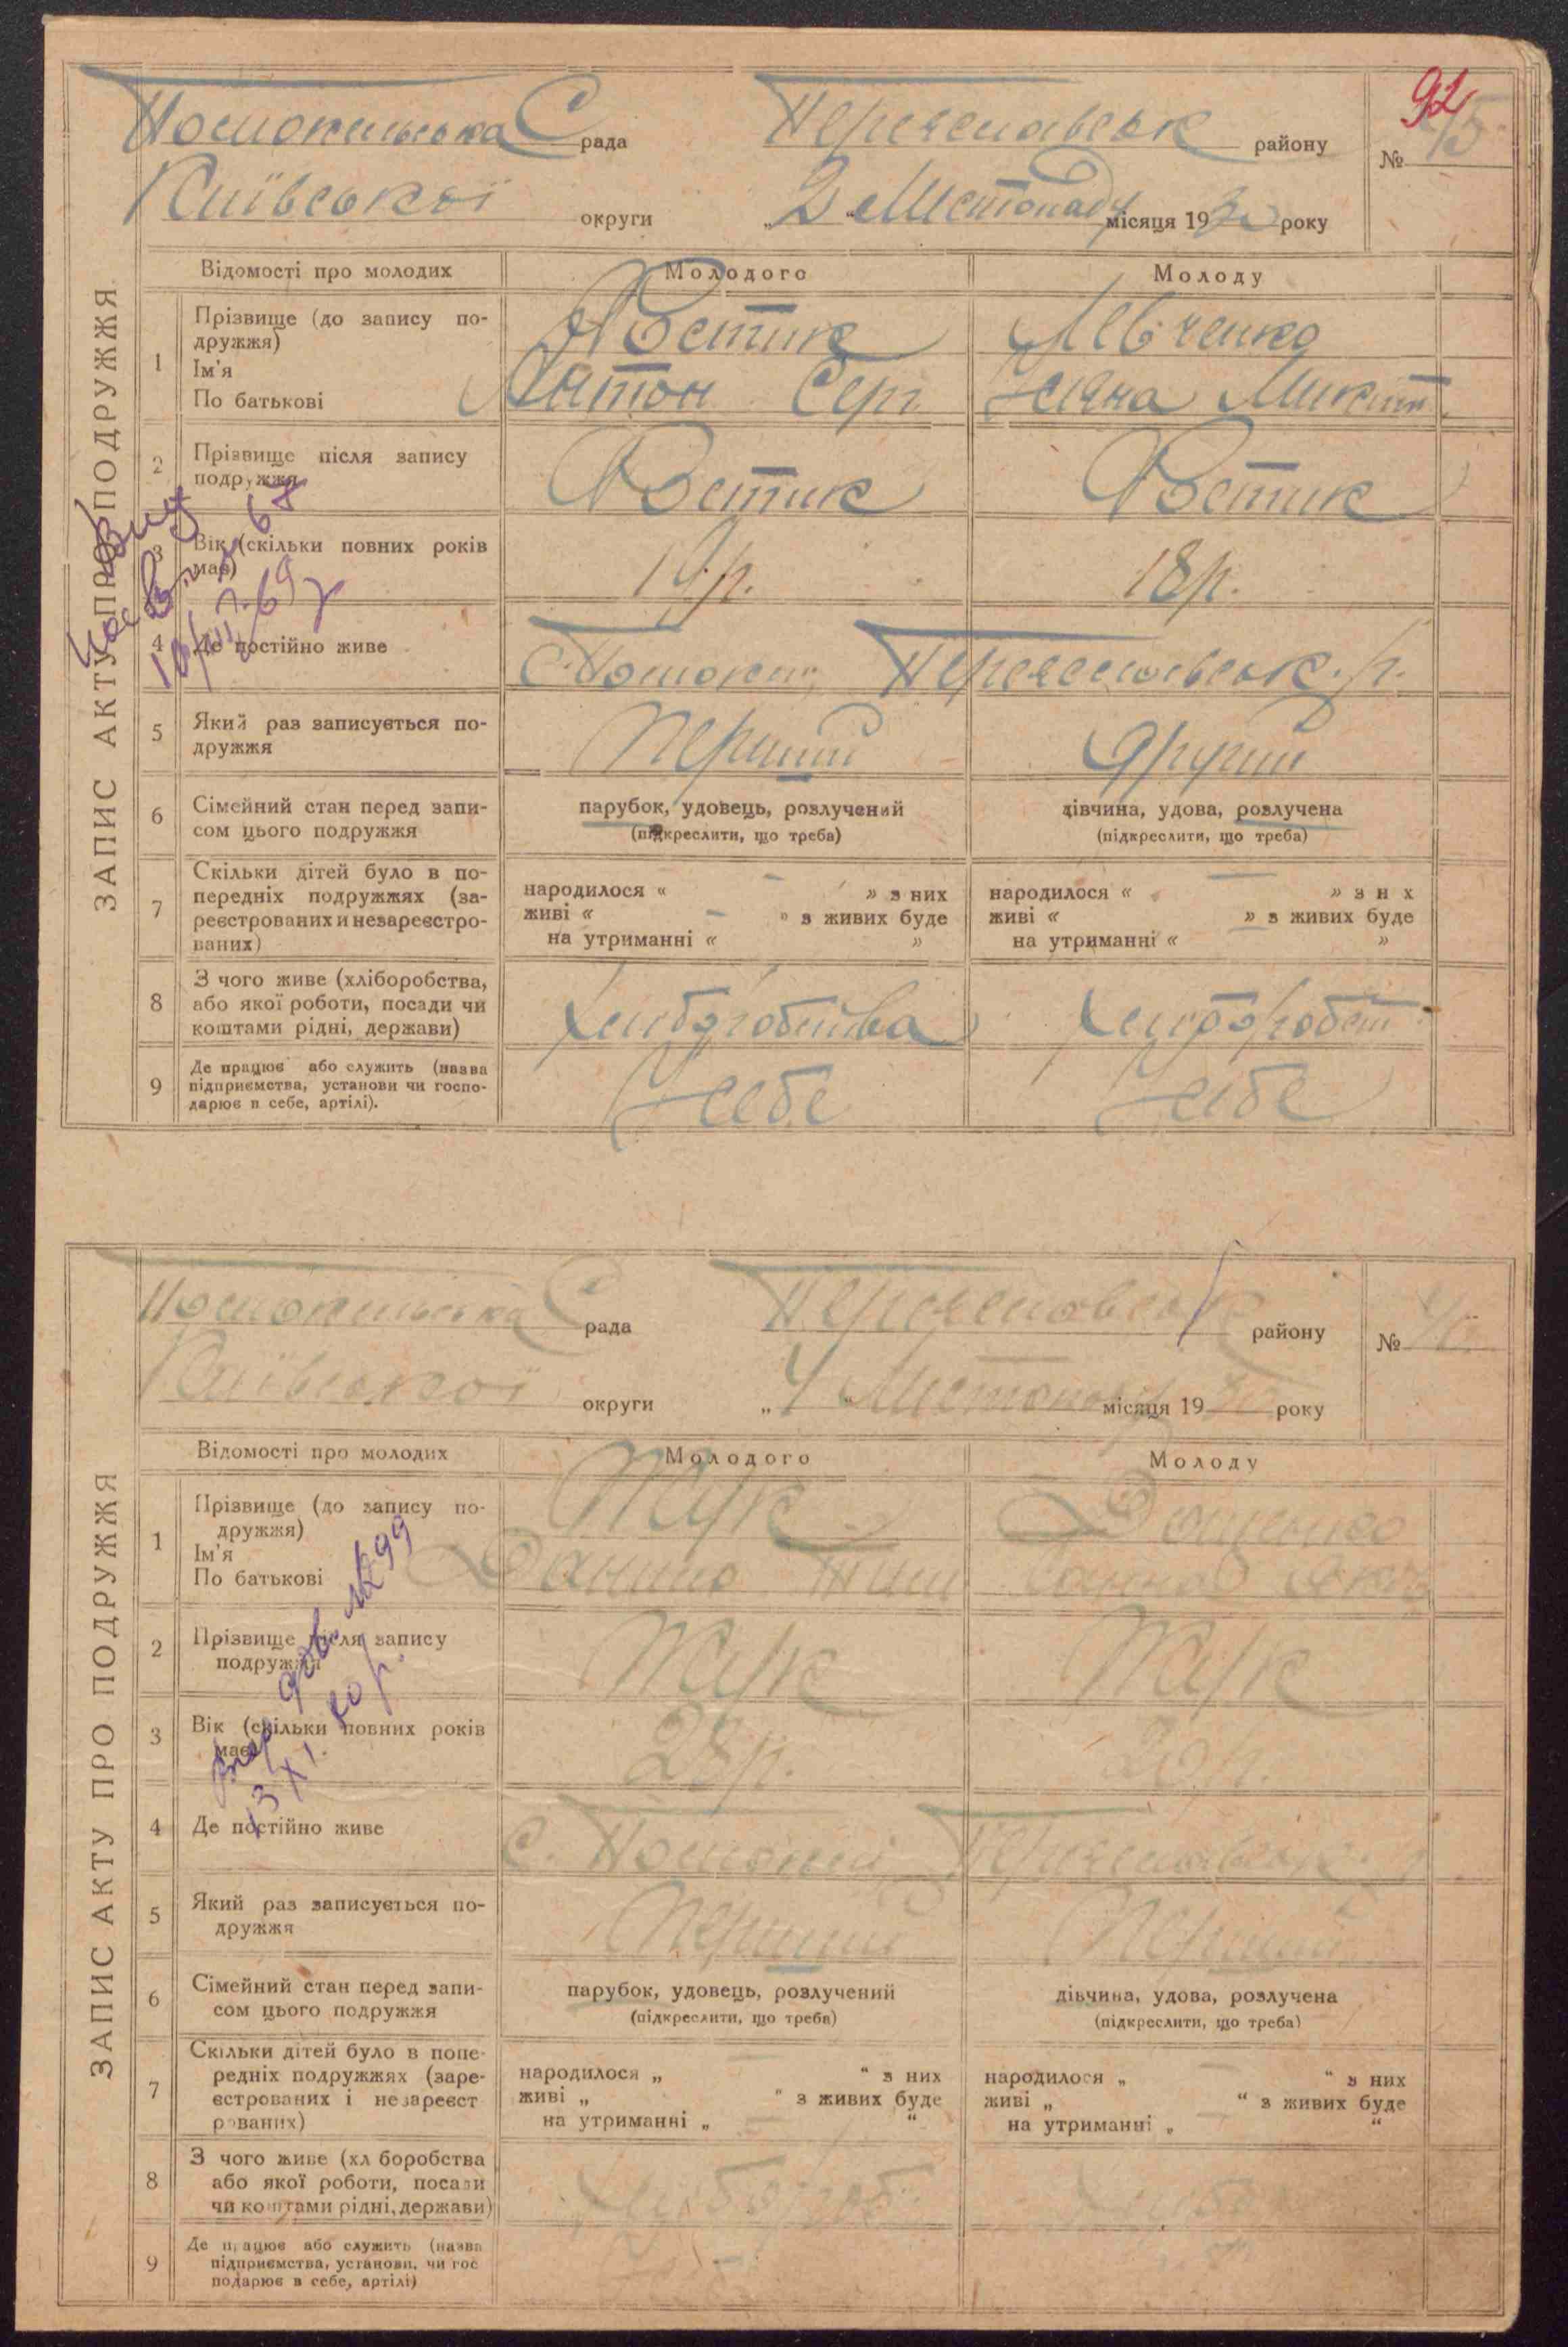 92
рада
Переяславськ району
№ 45
Київської округи
„ 2 “ Листопаду місяця 1930 року
ЗАПИС АКТУ ПРО ПОДРУЖЖЯ
Відомості про молодих Молодого Молоду
1 Прізвище (до запису по-
дружжя)
Ім'я
По батькові
Костик Левченко
Антон Серг Уляна Микит
2 Прізвище після запису
подружжя
Костик Костик
3 Вік (скільки повних років
має)
19 р. 18 р.
4 Де постійно живе
Переяславськ. р.
5 Який раз записується по-
дружжя
Перший Другий
6 Сімейний стан перед запи-
сом цього подружжя
парубок, удовець, розлучений
(підкреслити, що треба)
дівчина, удова, розлучена
(підкреслити, що треба)
7 Скільки дітей було в по-
передніх подружжях (за-
реєстрованих и незареєстро-
ваних)
народилося « — » з них
живі « — » з живих буде
на утриманні « »
народилося « — » з н х
живі « » з живих буде
на утриманні « — »
8 З чого живе (хліборобства,
або якої роботи, посади чи
коштами рідні, держави)
Хліборобства Хліборобст
9 Де працює або служить (назва
підприємства, установи чи госпо-
дарює в себе, артілі).
У себе У себе
рада
Переяславськ району
№
Київської округи
„ 4 “ Листопаду місяця 1930 року
ЗАПИС АКТУ ПРО ПОДРУЖЖЯ
Відомості про молодих Молодого Молоду
1 Прізвище (до запису по-
дружжя)
Ім'я
По батькові
Данило Тим
2 Прізвище після запису
подружжя
3 Вік (скільки повних років
має)
28 р. 20 р.
4 Де постійно живе
с. Переяславськ
5 Який раз записується по-
дружжя
Перший Перший
6 Сімейний стан перед запи-
сом цього подружжя
парубок, удовець, розлучений
(підкреслити, що треба)
дівчина, удова, розлучена
(підкреслити, що треба)
7 Скільки дітей було в попе-
редніх подружжях (заре-
єстрованих і незареєст
рованих)
народилося „ “ з них
живі „ “ з живих буде
на утриманні „ “
народилося „ “ з них
живі „ “ з живих буде
на утриманні „ “
8 З чого живе (хл боробства
або якої роботи, посади
чи коштами рідні, держави)
Хлібороб.
9 Де працює або служить (назва
підприємства, установи, чи гос
подарює в себе, артілі)